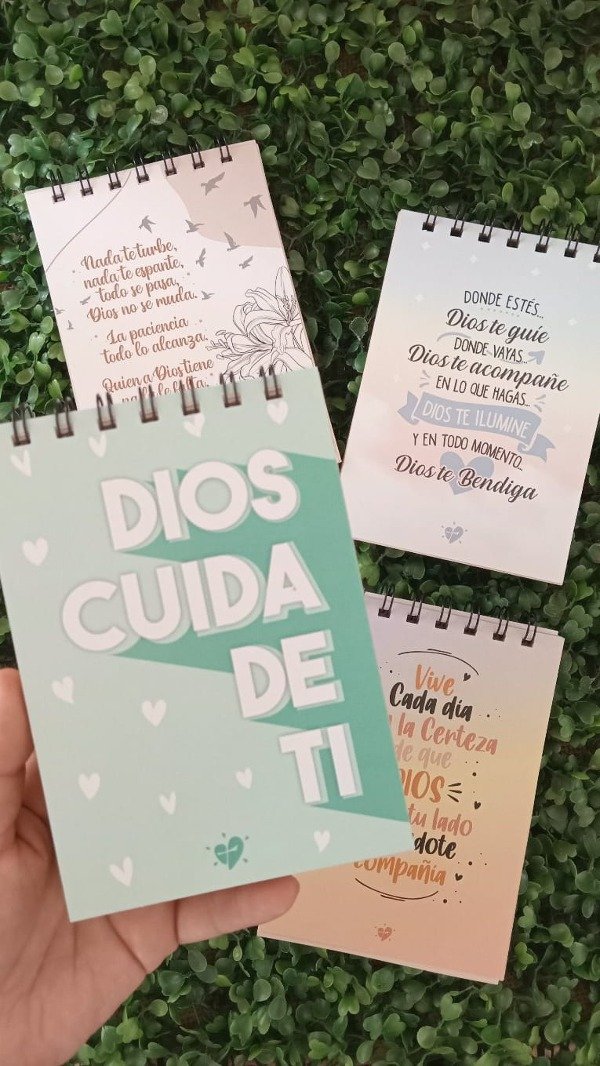 Nada te turbe,
nada te espante,
todo se pasa,
Dios no se muda.
La paciencia
todo lo alcanza.
Quien a Dios tiene
DONDE ESTÉS...
Dios te guíe
DONDE VAYAS...
Dios te acompañe
EN LO QUE HAGAS...
DIOS TE ILUMINE
Y EN TODO MOMENTO...
Dios te Bendiga
DIOS
CUIDA
DE
TI
Vive
Cada día
la Certeza
de que
tu lado
compañía